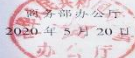 商务部办公厅
2020年5月20日
办公厅